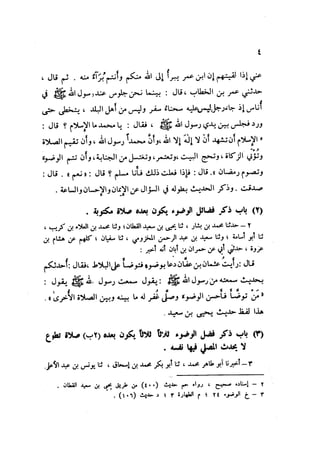 ٤
عني إذا لقيتهم إن ابن عمر يبرأ إلى الله منكم وأنتم برآء منه . ثم قال ،
حدثني عمر بن الخطاب ، قال : بينما نحن جلوس عند رسول الله ﷺ في
أناس إذ جاء رجل ليس عليه سحناء سفر وليس من أهل البلد ، يتخطى حتى
ورد فجلس بين يدي رسول الله ﷺ ، فقال : يا محمد ما الإسلام ؟ قال :
« الإسلام أن تشهد أن لا إله إلا الله ، وأن محمداً رسول الله ، وأن تقيم الصلاة
وتؤتي الزكاة ، وتحج البيت ، وتعتمر ، وتغتسل من الجنابة ، وأن تتم الوضوء
وتصوم رمضان » . قال : فإذا فعلت ذلك فأنا مسلم ؟ قال : « نعم » . قال :
صدقت . وذكر الحديث بطوله في السؤال عن الإيمان والإحسان والساعة .
(٢) باب ذكر فضائل الوضوء يكون بعده صلاة مكتوبة .
٢ – حدثنا محمد بن بشار ، نا يحيى بن سعيد القطان ؛ ونا محمد بن العلاء بن كريب ،
نا أبو أسامة ؛ ونا سعيد بن عبد الرحمن المخزومي ، نا سفيان ؛ كلهم عن هشام بن
عروة ؛ حدثني أبي عن حمران بن أبان أنه أخبره :
قال : رأيت عثمان بن عفان دعا بوضوء فتوضأ على البلاط ، فقال : أحدثكم
بحديث سمعته من رسول الله ﷺ : يقول سمعت رسول الله ﷺ يقول :
« من توضأ فأحسن الوضوء وصلى غفر له ما بينه وبين الصلاة الأخرى » .
هذا لفظ حديث يحيى بن سعيد .
(٣) باب ذكر فضل الوضوء ثلاثاً ثلاثاً يكون بعده (٢ب) صلاة تطوع
لا يحدث المصلي فيها نفسه .
٣ – أخبرنا أبو طاهر محمد ، نا أبو بكر محمد بن إسحاق ، نا يونس بن عبد الأعلى
٢ – إسناده صحيح ، رواه حم حديث (٤٠٠) من طريق يحيى بن سعيد القطان .
٣ – خ الوضوء ٢٤ ؛ م الطهارة ٣ ؛ د حديث (١٠٦) .